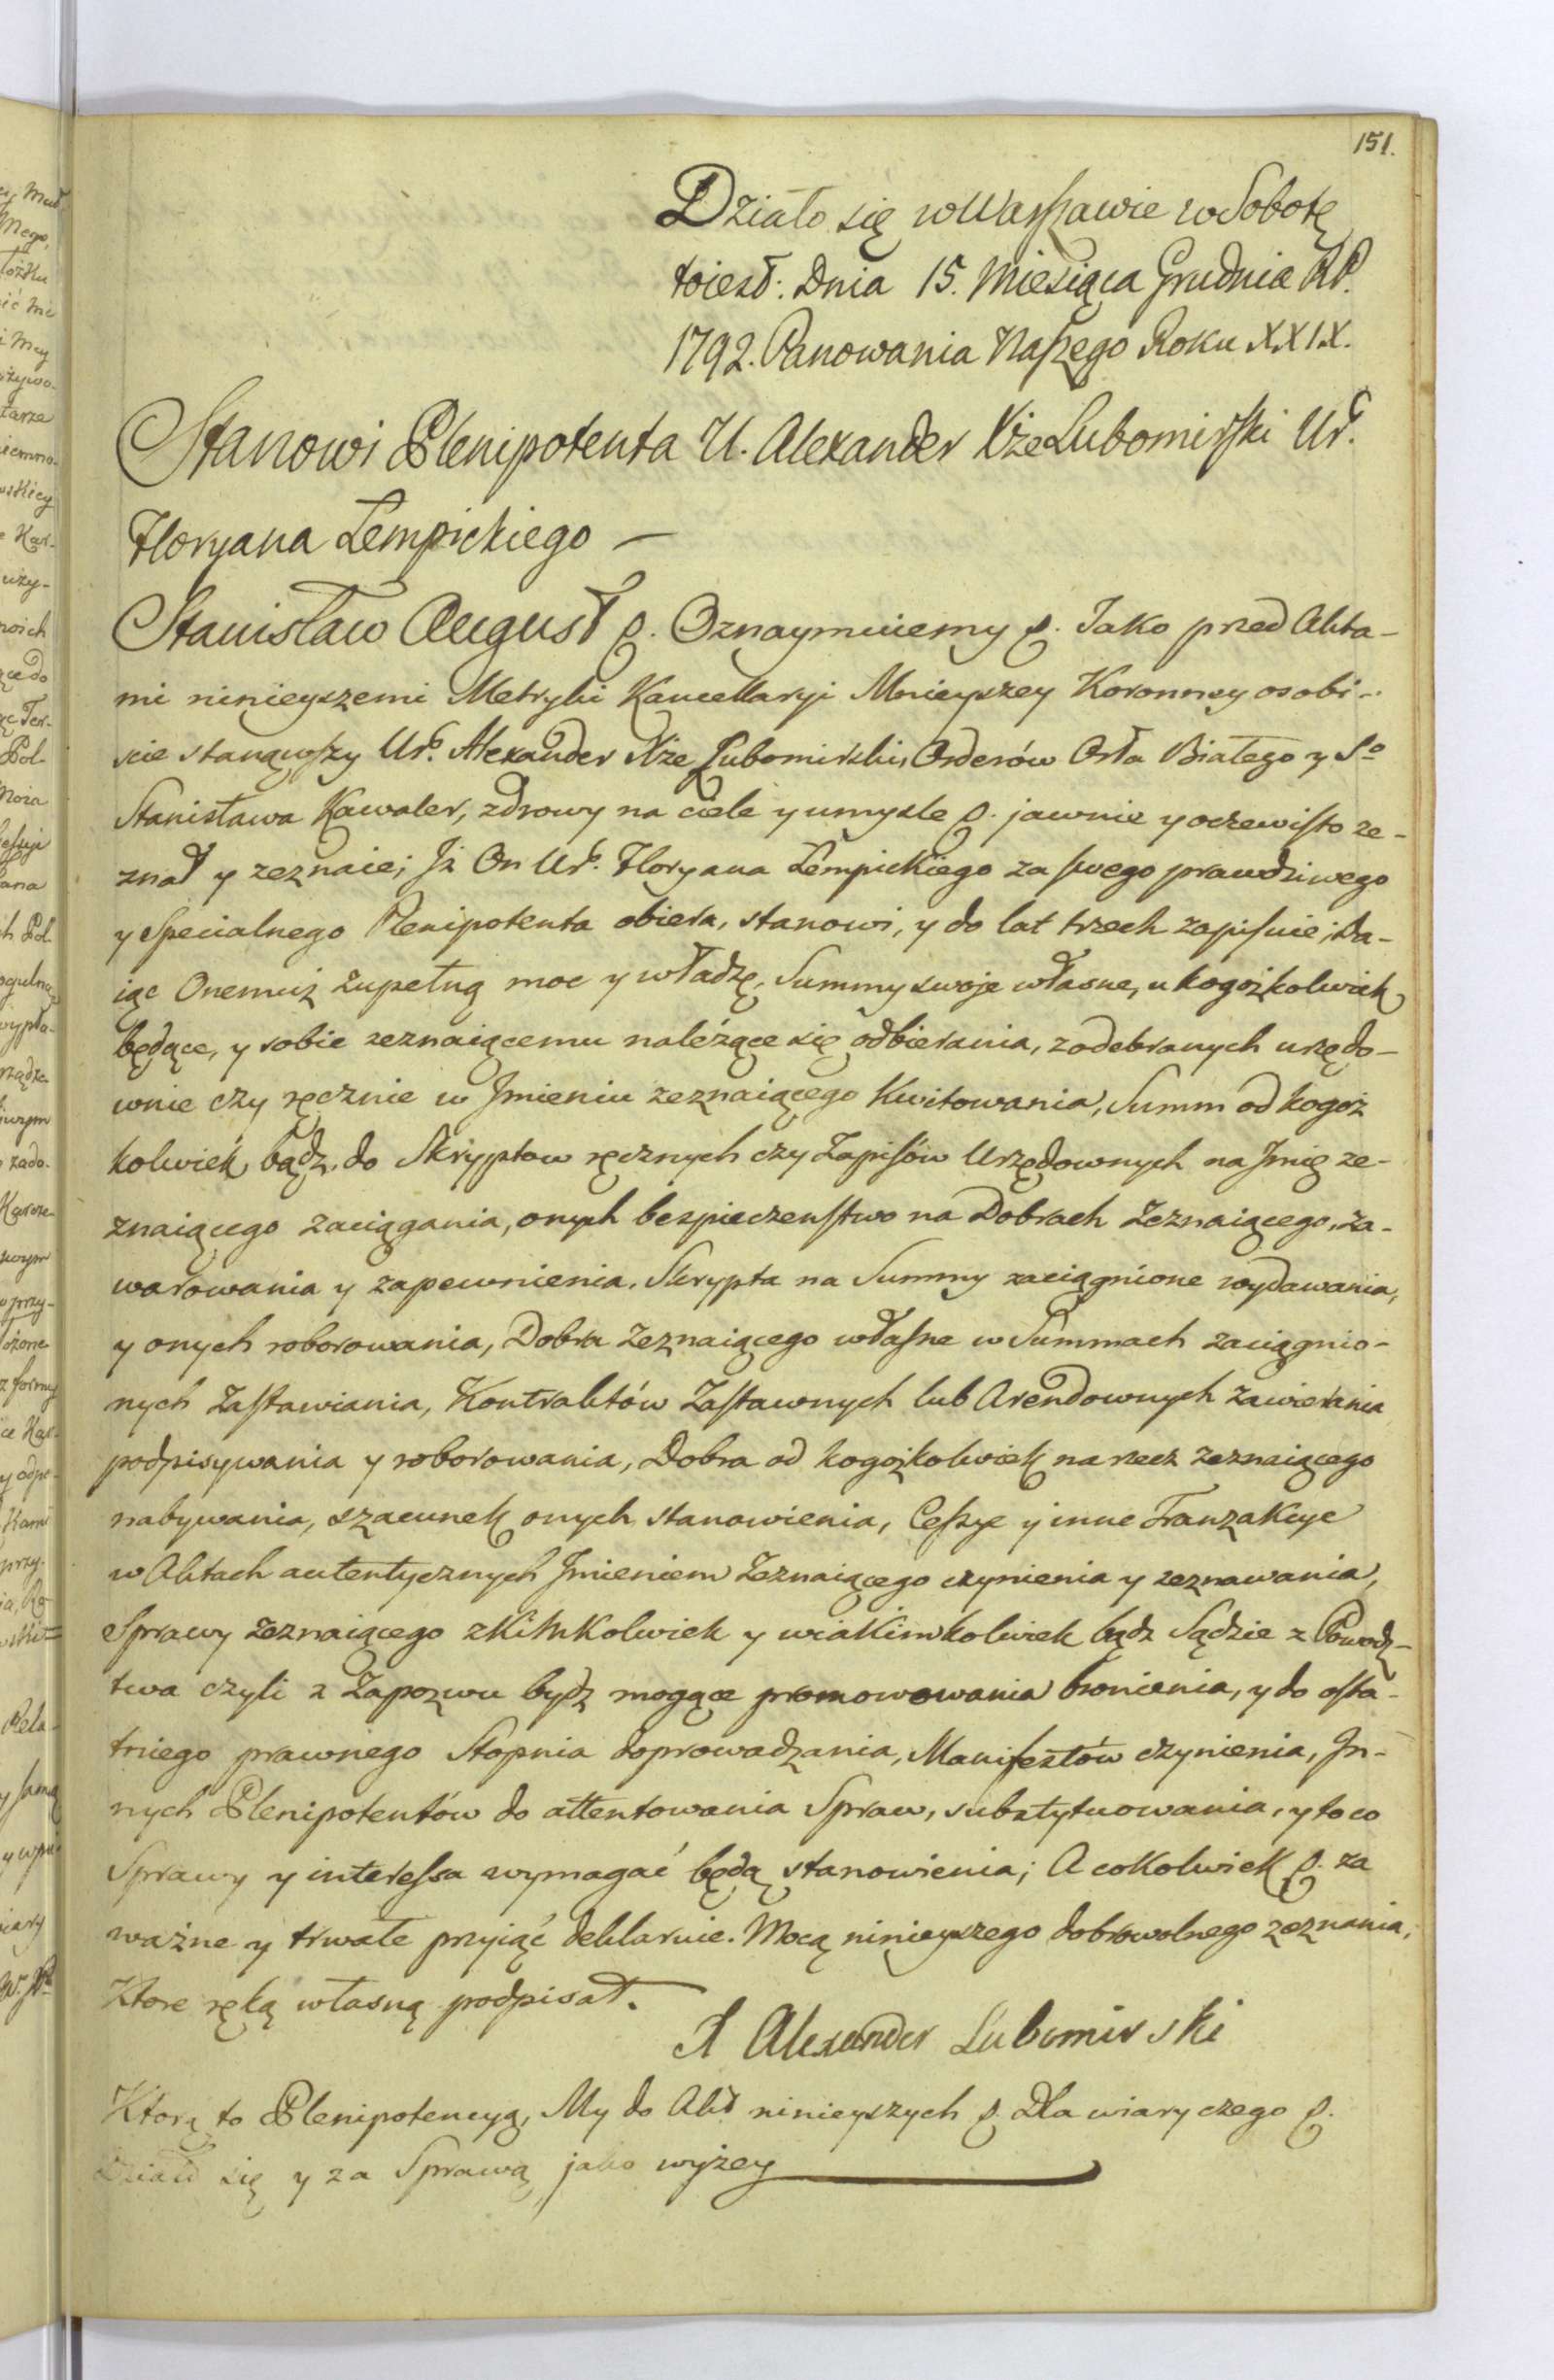 151.
Działo się w Warszawie w Sobotę
to iest: Dnia 15. Miesiąca Grudnia RP.
1792. Panowania Naszego Roku XXIX.
Stanowi Plenipotenta U. Alexander Xże Lubomirski Ur.
Floryana Łempickiego —
Stanisław August p. Oznaymuiemy p. Jako przed Akta-
mi ninieyszemi Metryki Kancellaryi Mnieyszey Koronney osobi-
scie stanąwszy Ur. Alexander Xże Lubomirski, Orderów Orła Białego y So
Stanisława Kawaler, zdrowy na ciele y umysle p. jawnie y oczewisto ze-
znał y zeznaie; Iż On Ur. Floryana Łempickiego za swego prawdziwego
y Specialnego Plenipotenta obiera, stanowi, y do lat trzech zapisuie; Da-
iąc Onemuż zupełną moc y władzę, Summy swoje własne, u kogożkolwiek
będące, y sobie zeznaiącemu należące się odbierania, z odebranych urzędo-
wnie czy ręcznie w Jmieniu zeznaiącego Kwitowania, Summ od kogoż
kolwiek bądz, do Skryptow ręcznych czy Zapisów Urzędownych na Jmię ze-
znaiącego zaciągania, onych bespieczenstwo na Dobrach Zeznaiącego, za-
warowania y zapewnienia, Skrypta na Summy zaciągnione wydawania,
y onych roborowania, Dobra Zeznaiącego własne w Summach zaciągnio-
nych Zastawiania, Kontraktów Zastawnych lub Arendownych zawierania
podpisywania y roborowania, Dobra od kogożkolwiek na rzecz zeznaiącego
nabywania, szacunek onych stanowienia, Cessye y inne Tranzakcye
w Aktach autentycznych Jmieniem Zeznaiącego czynienia y zeznawania,
Sprawy Zeznaiącego z kimkolwiek y w iakimkolwiek bądz Sądzie z Powodz-
twa czyli z Zapozwu bydz mogące promowowania bronienia, y do osta-
tniego prawnego Stopnia doprowadzania, Manifestów czynienia, In-
nych Plenipotentów do attentowania Spraw, substytuowania, y to co
Sprawy y interessa wymagać będą stanowienia; A cokolwiek p. za
ważne y trwałe przyiąć deklaruie. Mocą ninieyszego dobrowolnego zeznania,
Ktore ręką własną podpisał.
X Alexander Lubomirski
Którą to Plenipotencyą, My do Akt ninieyszych p. Dla wiary czego p.
Działo się y za Sprawą jako wyżey